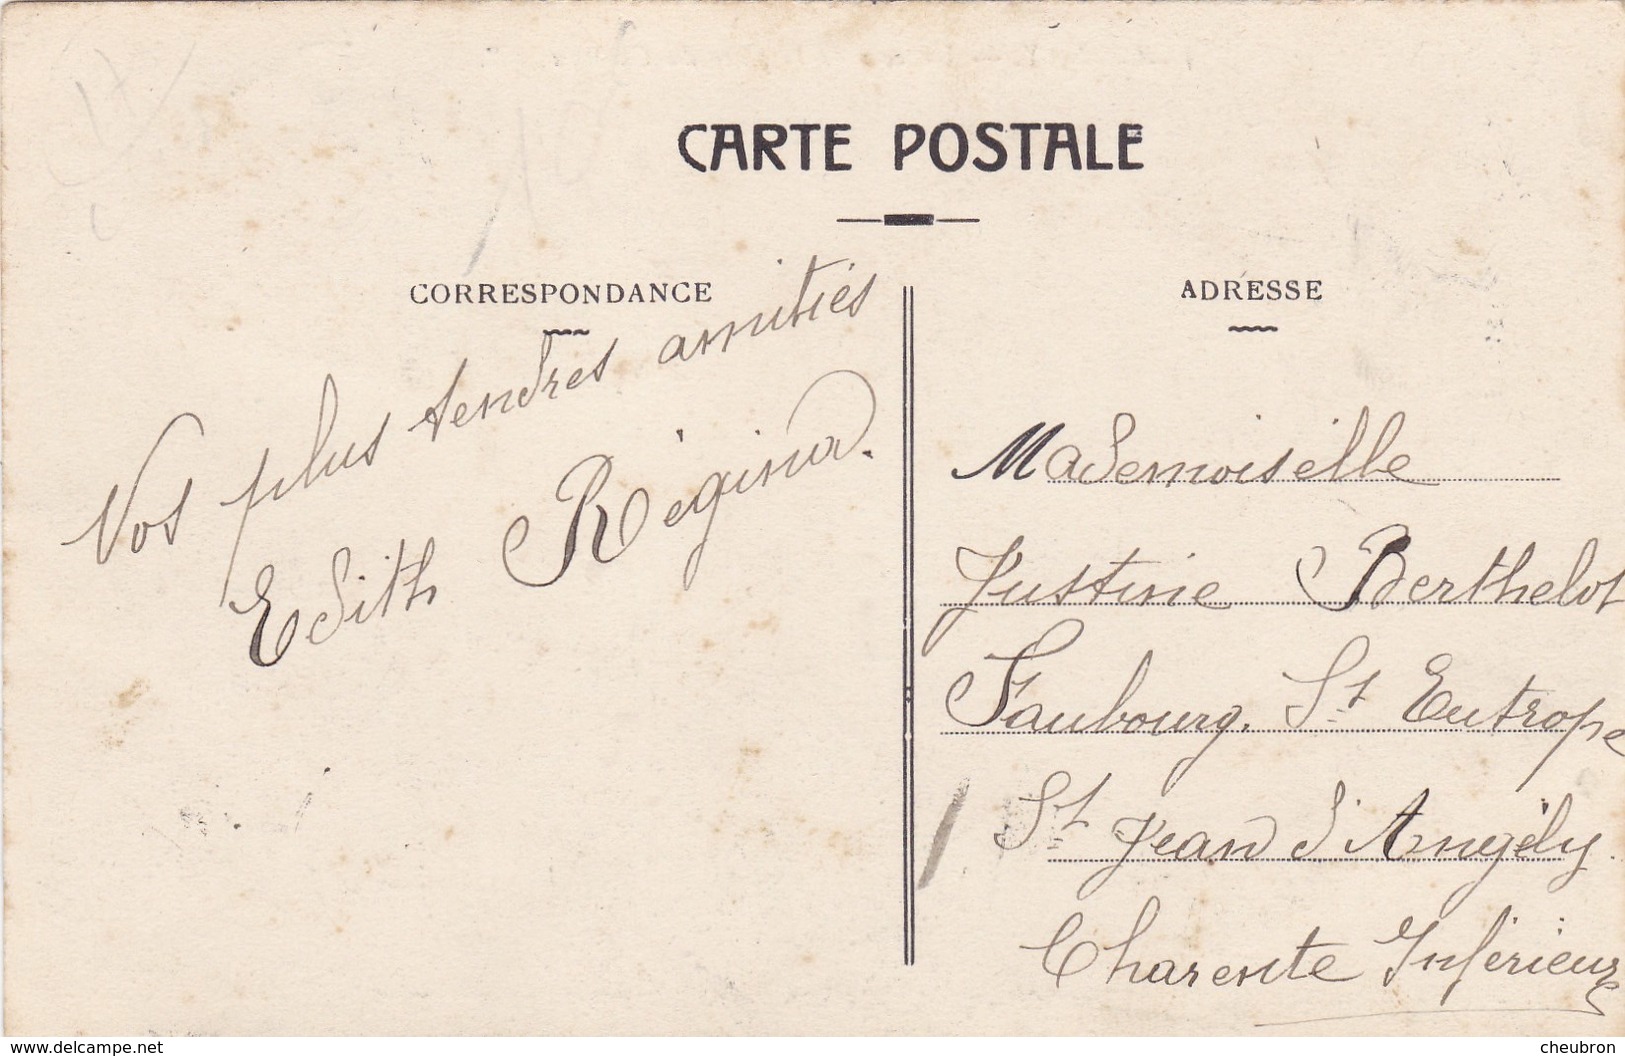 CARTE POSTALE
CORRESPONDANCE
Nos plus tendres amitiés
Edith Régina.
ADRESSE
Mademoiselle
Justine Berthelot
Faubourg. St Eutrope
St Jean d'Angély
Charente Inférieure
www.delcampe.net
cheubron